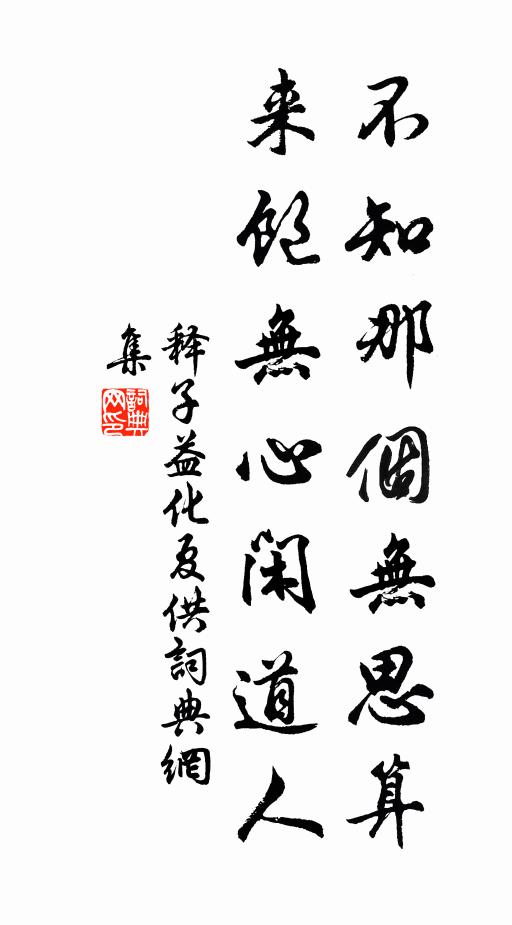 不知那個無思算
来飽無心閑道人
释子益化夏供詞典網
集
詞典
网印